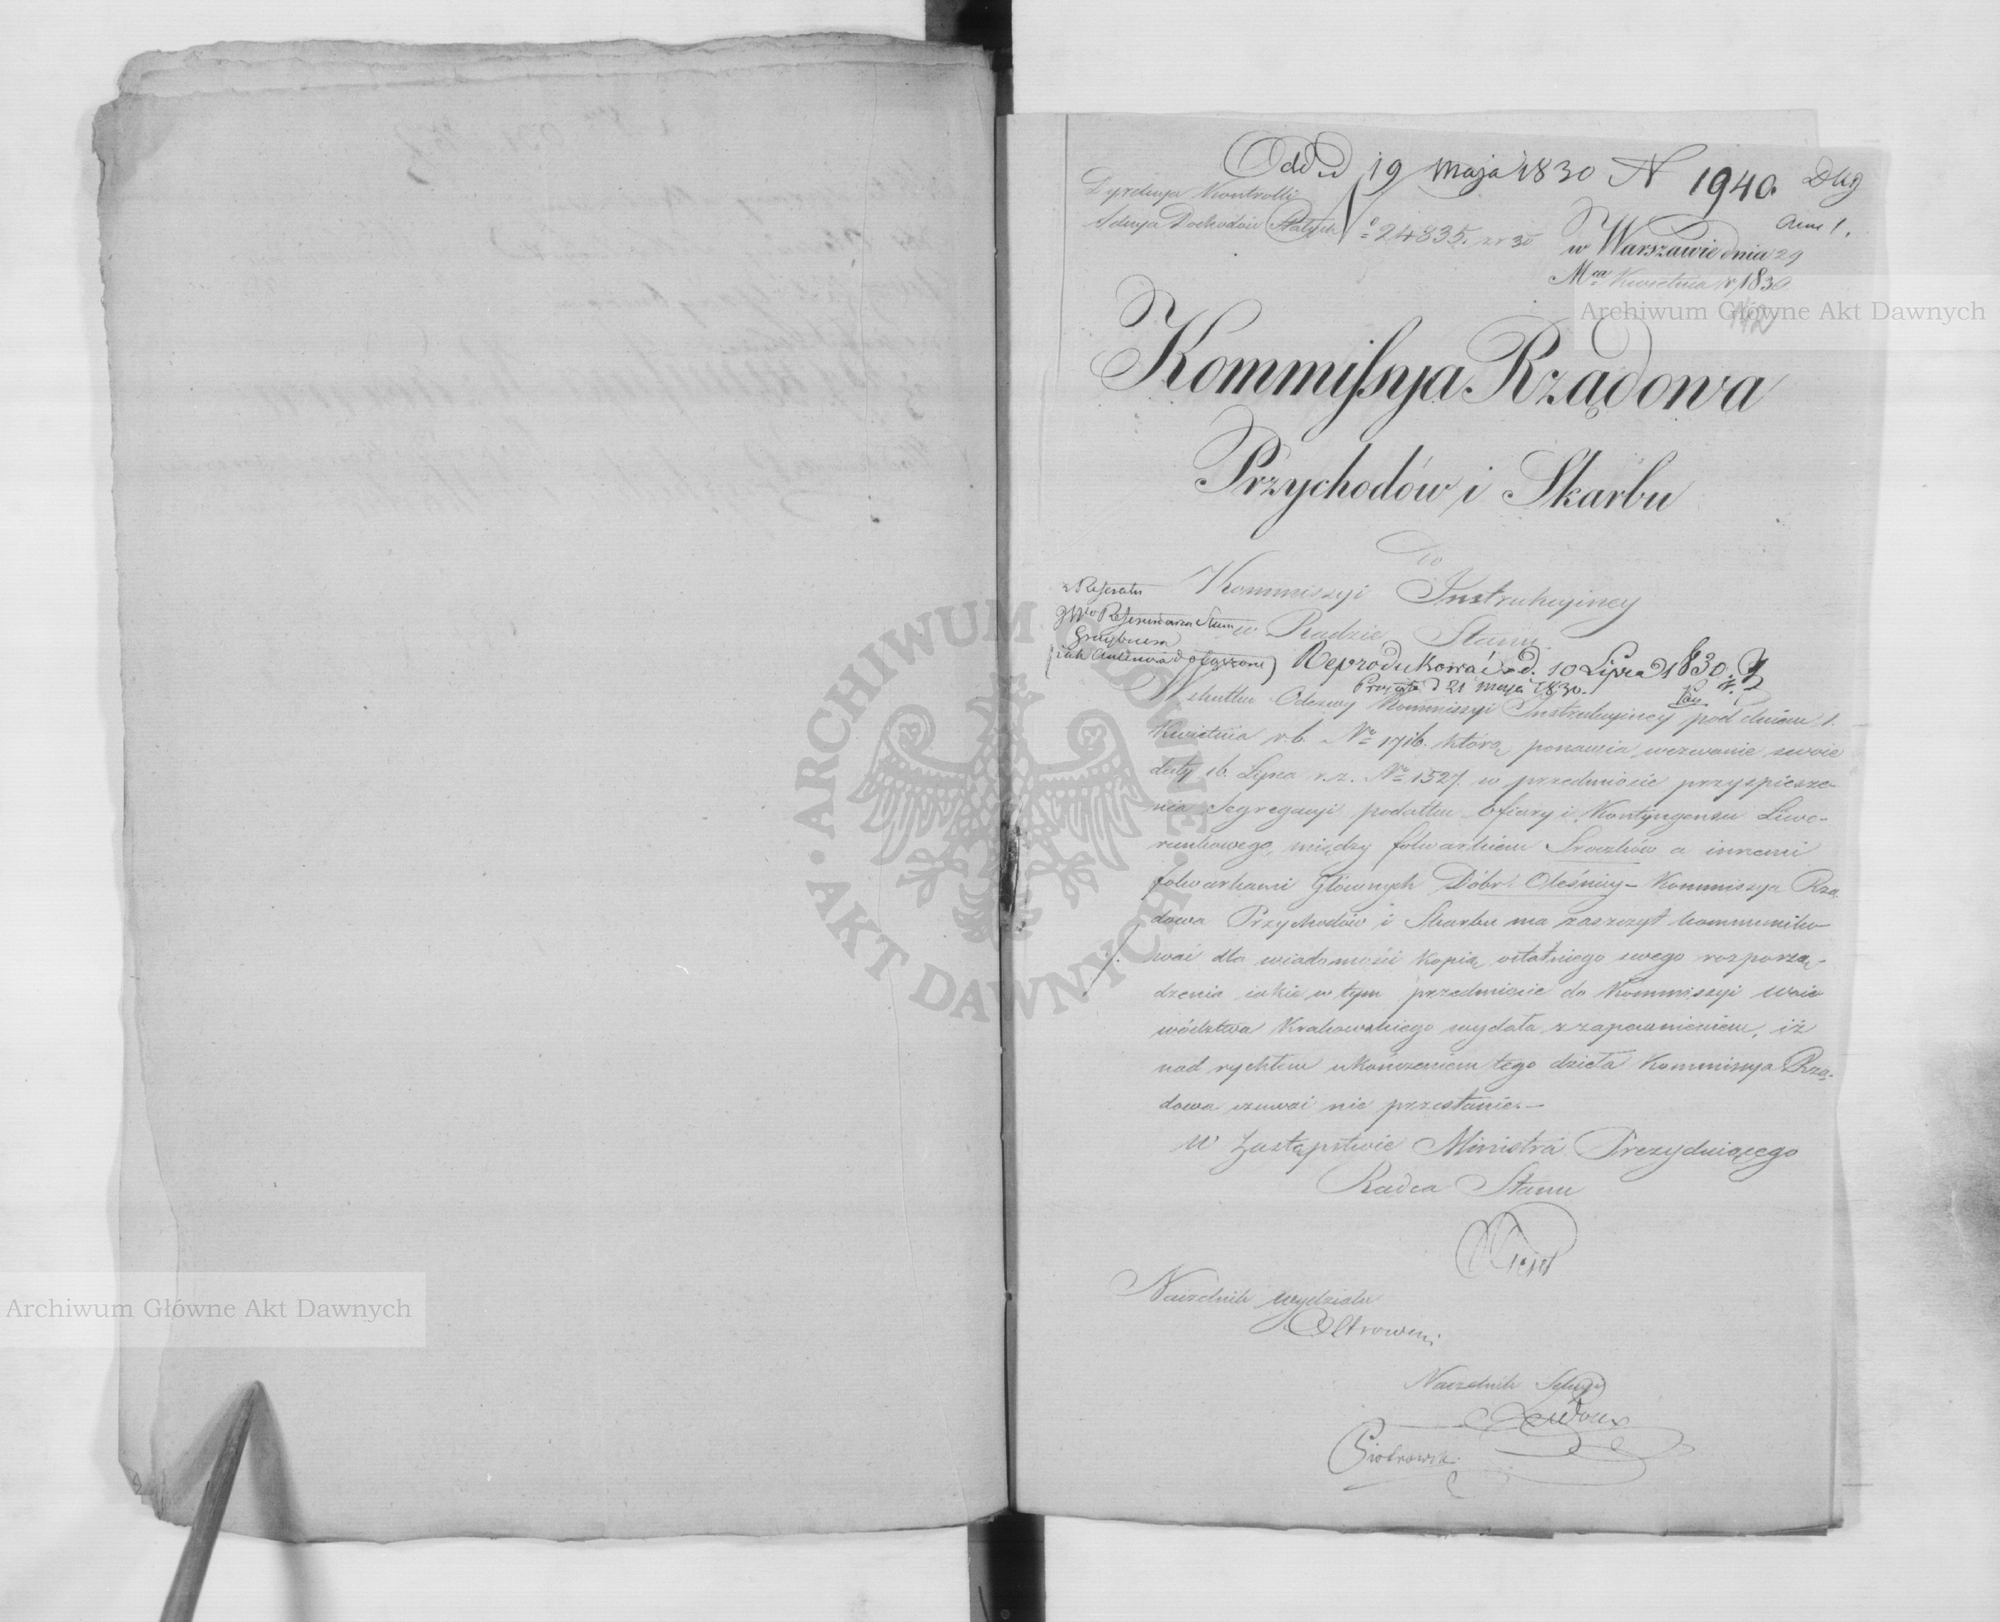 Odd. d 19 Maja 1830 N 1940.
Dyrekcya Kontrolli
Dochodów Stałych
N° 24835. z r 30
Ann 1.
w Warszawie dnia 29
Mca Kwietnia r. 1830
Archiwum Główne Akt Dawnych
Kommissya Rządowa
Przychodów i Skarbu
Do
Kommiszyi Instrukcyiney
w Radzie Stanu
z Referatu
JWo Referendarza Stanu
Reprodukować d. 10 Lipca 1830.
Prezent d 21 maja 1830.
W skutku Odezwy Kommissyi Instrukcyiney pod dniem 1.
Kwietnia r.b. Nro 1716. którą ponawia wezwanie swoie
daty 16. Lipca r.z. Nro 1527. w przedmiocie przyspiesze-
nia Segregacyi podatku Ofiary i Kontyngensu Liwe-
runkowego, między folwarkiem a innemi
folwarkami Głównych Dóbr Oleśnicy – Kommissya Rzą-
dowa Przychodów i Skarbu ma zaszczyt kommuniko-
wać dla wiadomości kopią ostatniego swego rozporzą-
dzenia iakie w tym przedmiocie do Kommissyi Woie
wództwa Krakowskiego wydała z zapewnieniem, iż
nad rychłem ukończeniem tego dzieła Kommissya Rzą-
dowa czuwać nie przestanie.–
W Zastępstwie Ministra Prezyduiącego
Radca Stanu
Naczelnik Wydziału
Naczelnik Sekcyi
Piotrowski
ARCHIWUM GŁÓWNE
AKT DAWNYCH
Archiwum Główne Akt Dawnych